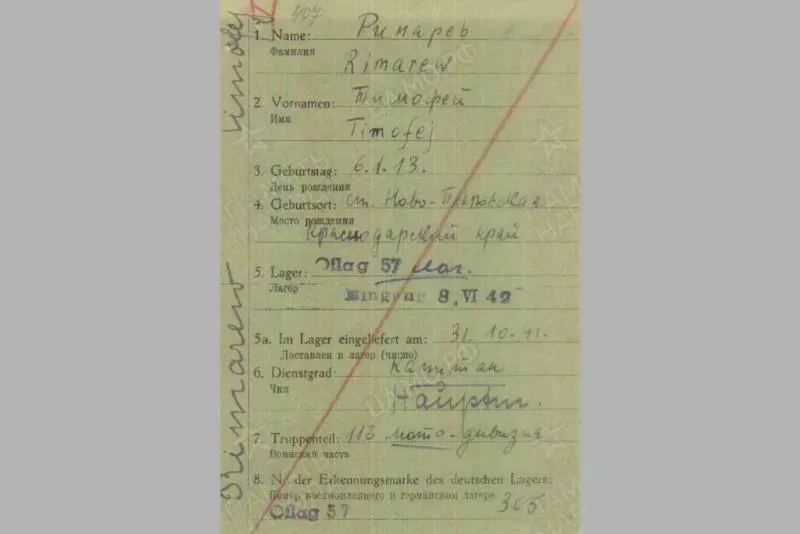 407
1. Name: Римарев
Фамилия
Rimarew
2. Vornamen: Тимофей
Имя
Timofej
3. Geburtstag: 6.1.13.
День рождения
4. Geburtsort: ст. Ново-
Место рождения
Краснодарский край
5. Lager: Oflag 57
Лагерь
Eingang 8. VI 42
5a. Im Lager eingeliefert am: 31. 10. 41.
Доставлен в лагер (число)
6. Dienstgrad: капитан
Чин
Hauptm.
7. Truppenteil: 112 мото-дивизия
Воинская часть
8. N. der Erkennungsmarke des deutschen Lagers:
Номер военнопленного и германском лагере 365
Oflag 57
Rimarew
Timofej